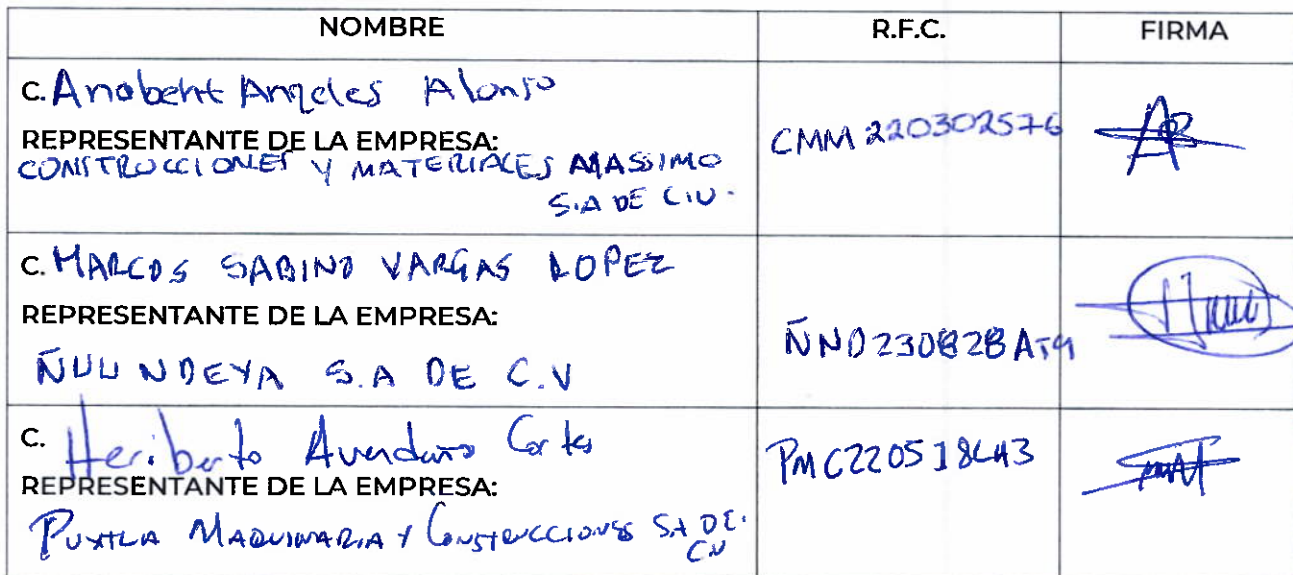 NOMBRE R.F.C. FIRMA
C. Anabent Angeles Alonso
REPRESENTANTE DE LA EMPRESA:
CONSTRUCCIONES Y MATERIALES MASSIMO
S.A DE C.V.
CMM220302576
C. MARCOS SABINO VARGAS LOPEZ
REPRESENTANTE DE LA EMPRESA:
ÑUU NDEYA S.A DE C.V
ÑND230828AT9
C. Heriberto Avendaño Cortes
REPRESENTANTE DE LA EMPRESA:
PUXTLA MAQUINARIA Y CONSTRUCCIONES S.A DE.
CV
PMC220518LH3